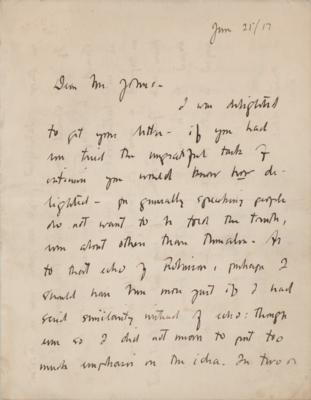 Jan 25/17
Dear Mr. Jones-
I was delighted
to get your letter - if you had
ever tried the ungrateful task of
criticism you would know how de-
lighted - for generally speaking people
do not want to be told the truth,
even about others than themselves. As
to that echo of Robinson, perhaps I
should have been more just if I had
said similarity instead of echo: though
even so I did not mean to put too
much emphasis on the idea. In two or